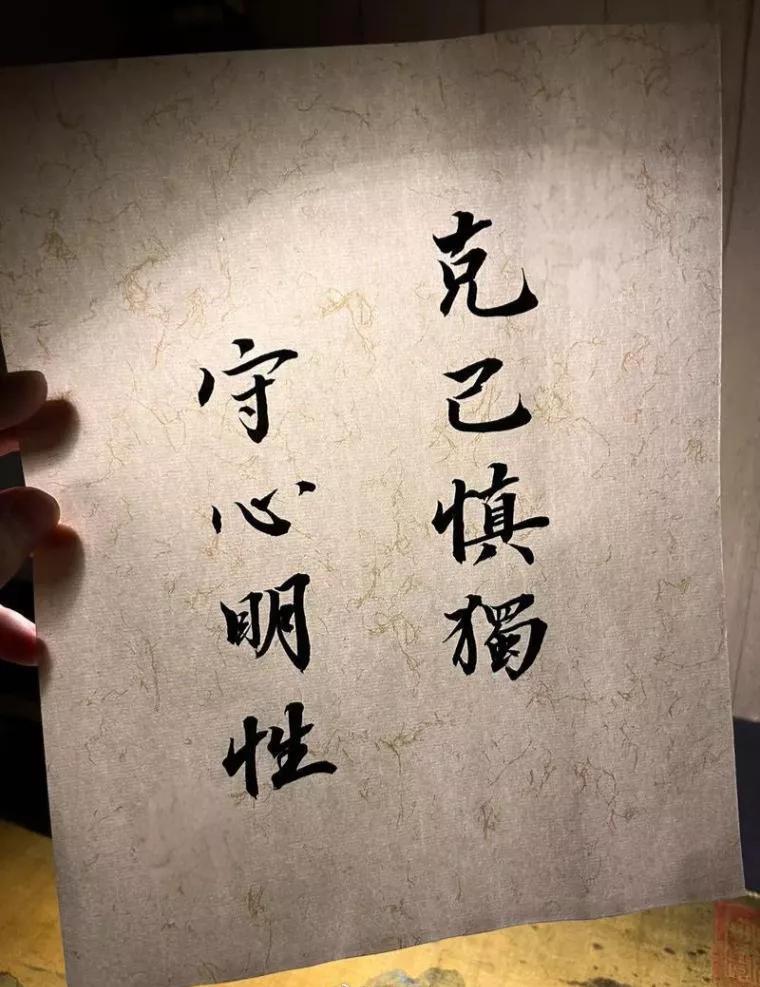 克己慎獨
守心明性